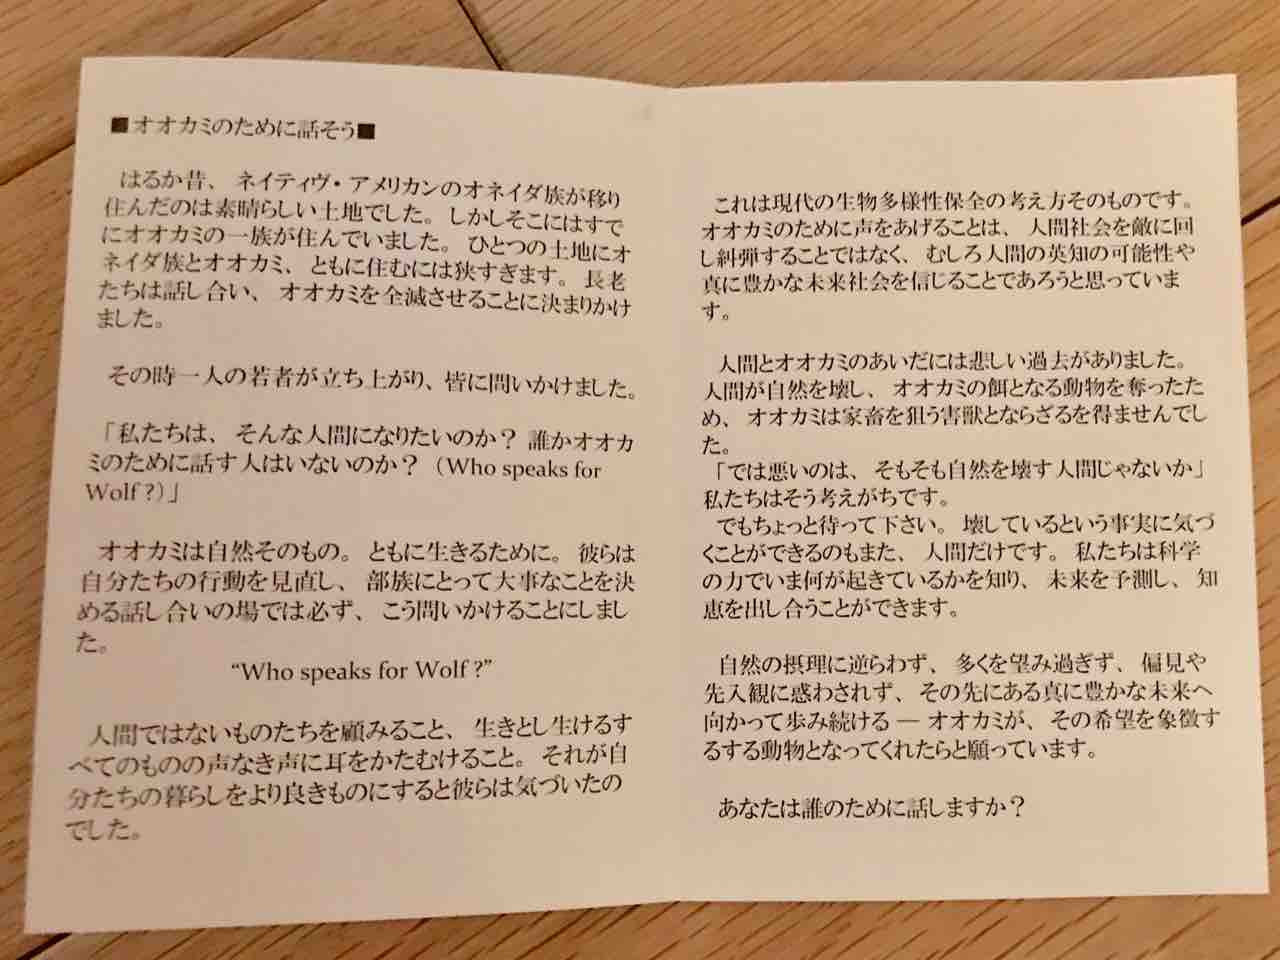 ■オオカミのために話そう■
はるか昔、ネイティヴ・アメリカンのオネイダ族が移り
住んだのは素晴らしい土地でした。しかしそこにはすで
にオオカミの一族が住んでいました。ひとつの土地にオ
ネイダ族とオオカミ、ともに住むには狭すぎます。長老
たちは話し合い、オオカミを全滅させることに決まりかけ
ました。
その時一人の若者が立ち上がり、皆に問いかけました。
「私たちは、そんな人間になりたいのか？ 誰かオオカ
ミのために話す人はいないのか？（Who speaks for
Wolf ?）」
オオカミは自然そのもの。ともに生きるために。彼らは
自分たちの行動を見直し、部族にとって大事なことを決
める話し合いの場では必ず、こう問いかけることにしまし
た。
“Who speaks for Wolf ?”
人間ではないものたちを顧みること、生きとし生けるす
べてのものの声なき声に耳をかたむけること。それが自
分たちの暮らしをより良きものにすると彼らは気づいたの
でした。
これは現代の生物多様性保全の考え方そのものです。
オオカミのために声をあげることは、人間社会を敵に回
し糾弾することではなく、むしろ人間の英知の可能性や
真に豊かな未来社会を信じることであろうと思っていま
す。
人間とオオカミのあいだには悲しい過去がありました。
人間が自然を壊し、オオカミの餌となる動物を奪ったた
め、オオカミは家畜を狙う害獣とならざるを得ませんでし
た。
「では悪いのは、そもそも自然を壊す人間じゃないか」
私たちはそう考えがちです。
でもちょっと待って下さい。壊しているという事実に気づ
くことができるのもまた、人間だけです。私たちは科学
の力でいま何が起きているかを知り、未来を予測し、知
恵を出し合うことができます。
自然の摂理に逆らわず、多くを望み過ぎず、偏見や
先入観に惑わされず、その先にある真に豊かな未来へ
向かって歩み続ける ― オオカミが、その希望を象徴す
るする動物となってくれたらと願っています。
あなたは誰のために話しますか？